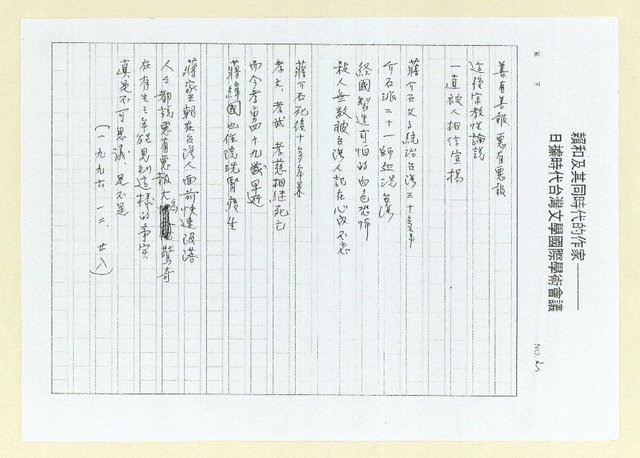 賴和及其同時代的作家——
日據時代台灣文學國際學術會議
NO.
善有善報 惡有惡報
這種宗教性論說
一直被人相信宣揚
蔣介石父子統治台灣五十多年
介石派二十一師血洗台灣
經國製造可怕的白色恐怖
殺人無數被台灣人記在心內不忘
蔣介石死後十多年來
孝文、孝武、孝慈相繼死亡
而今孝勇四十九歲早逝
蔣緯國也僅說賸殘生
蔣家王朝在台灣人面前快速沒落
人人都說惡有惡報大為驚奇
在有生之年能見到這樣的事實
真是不可思議 是不是
(一九九六、一二、廿八)